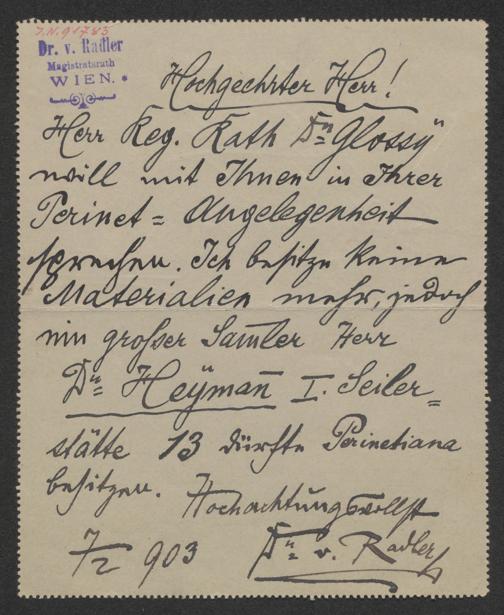 J.N. 91783
Dr. v. Radler
Magistratsrath
WIEN.
Hochgeehrter Herr!
Herr Reg. Rath Dr. Glossÿ
will mit Ihnen in Ihrer
Perinet = Angelegenheit
sprechen. Ich besitze keine
Materialien mehr, jedoch
ein großer Samler Herr
Dr. Heÿman̄ I. Seiler=
stätte 13 dürfte Perinetiana
besitzen. Hochachtungsvollst
7/2 903 Dr. v. Radler